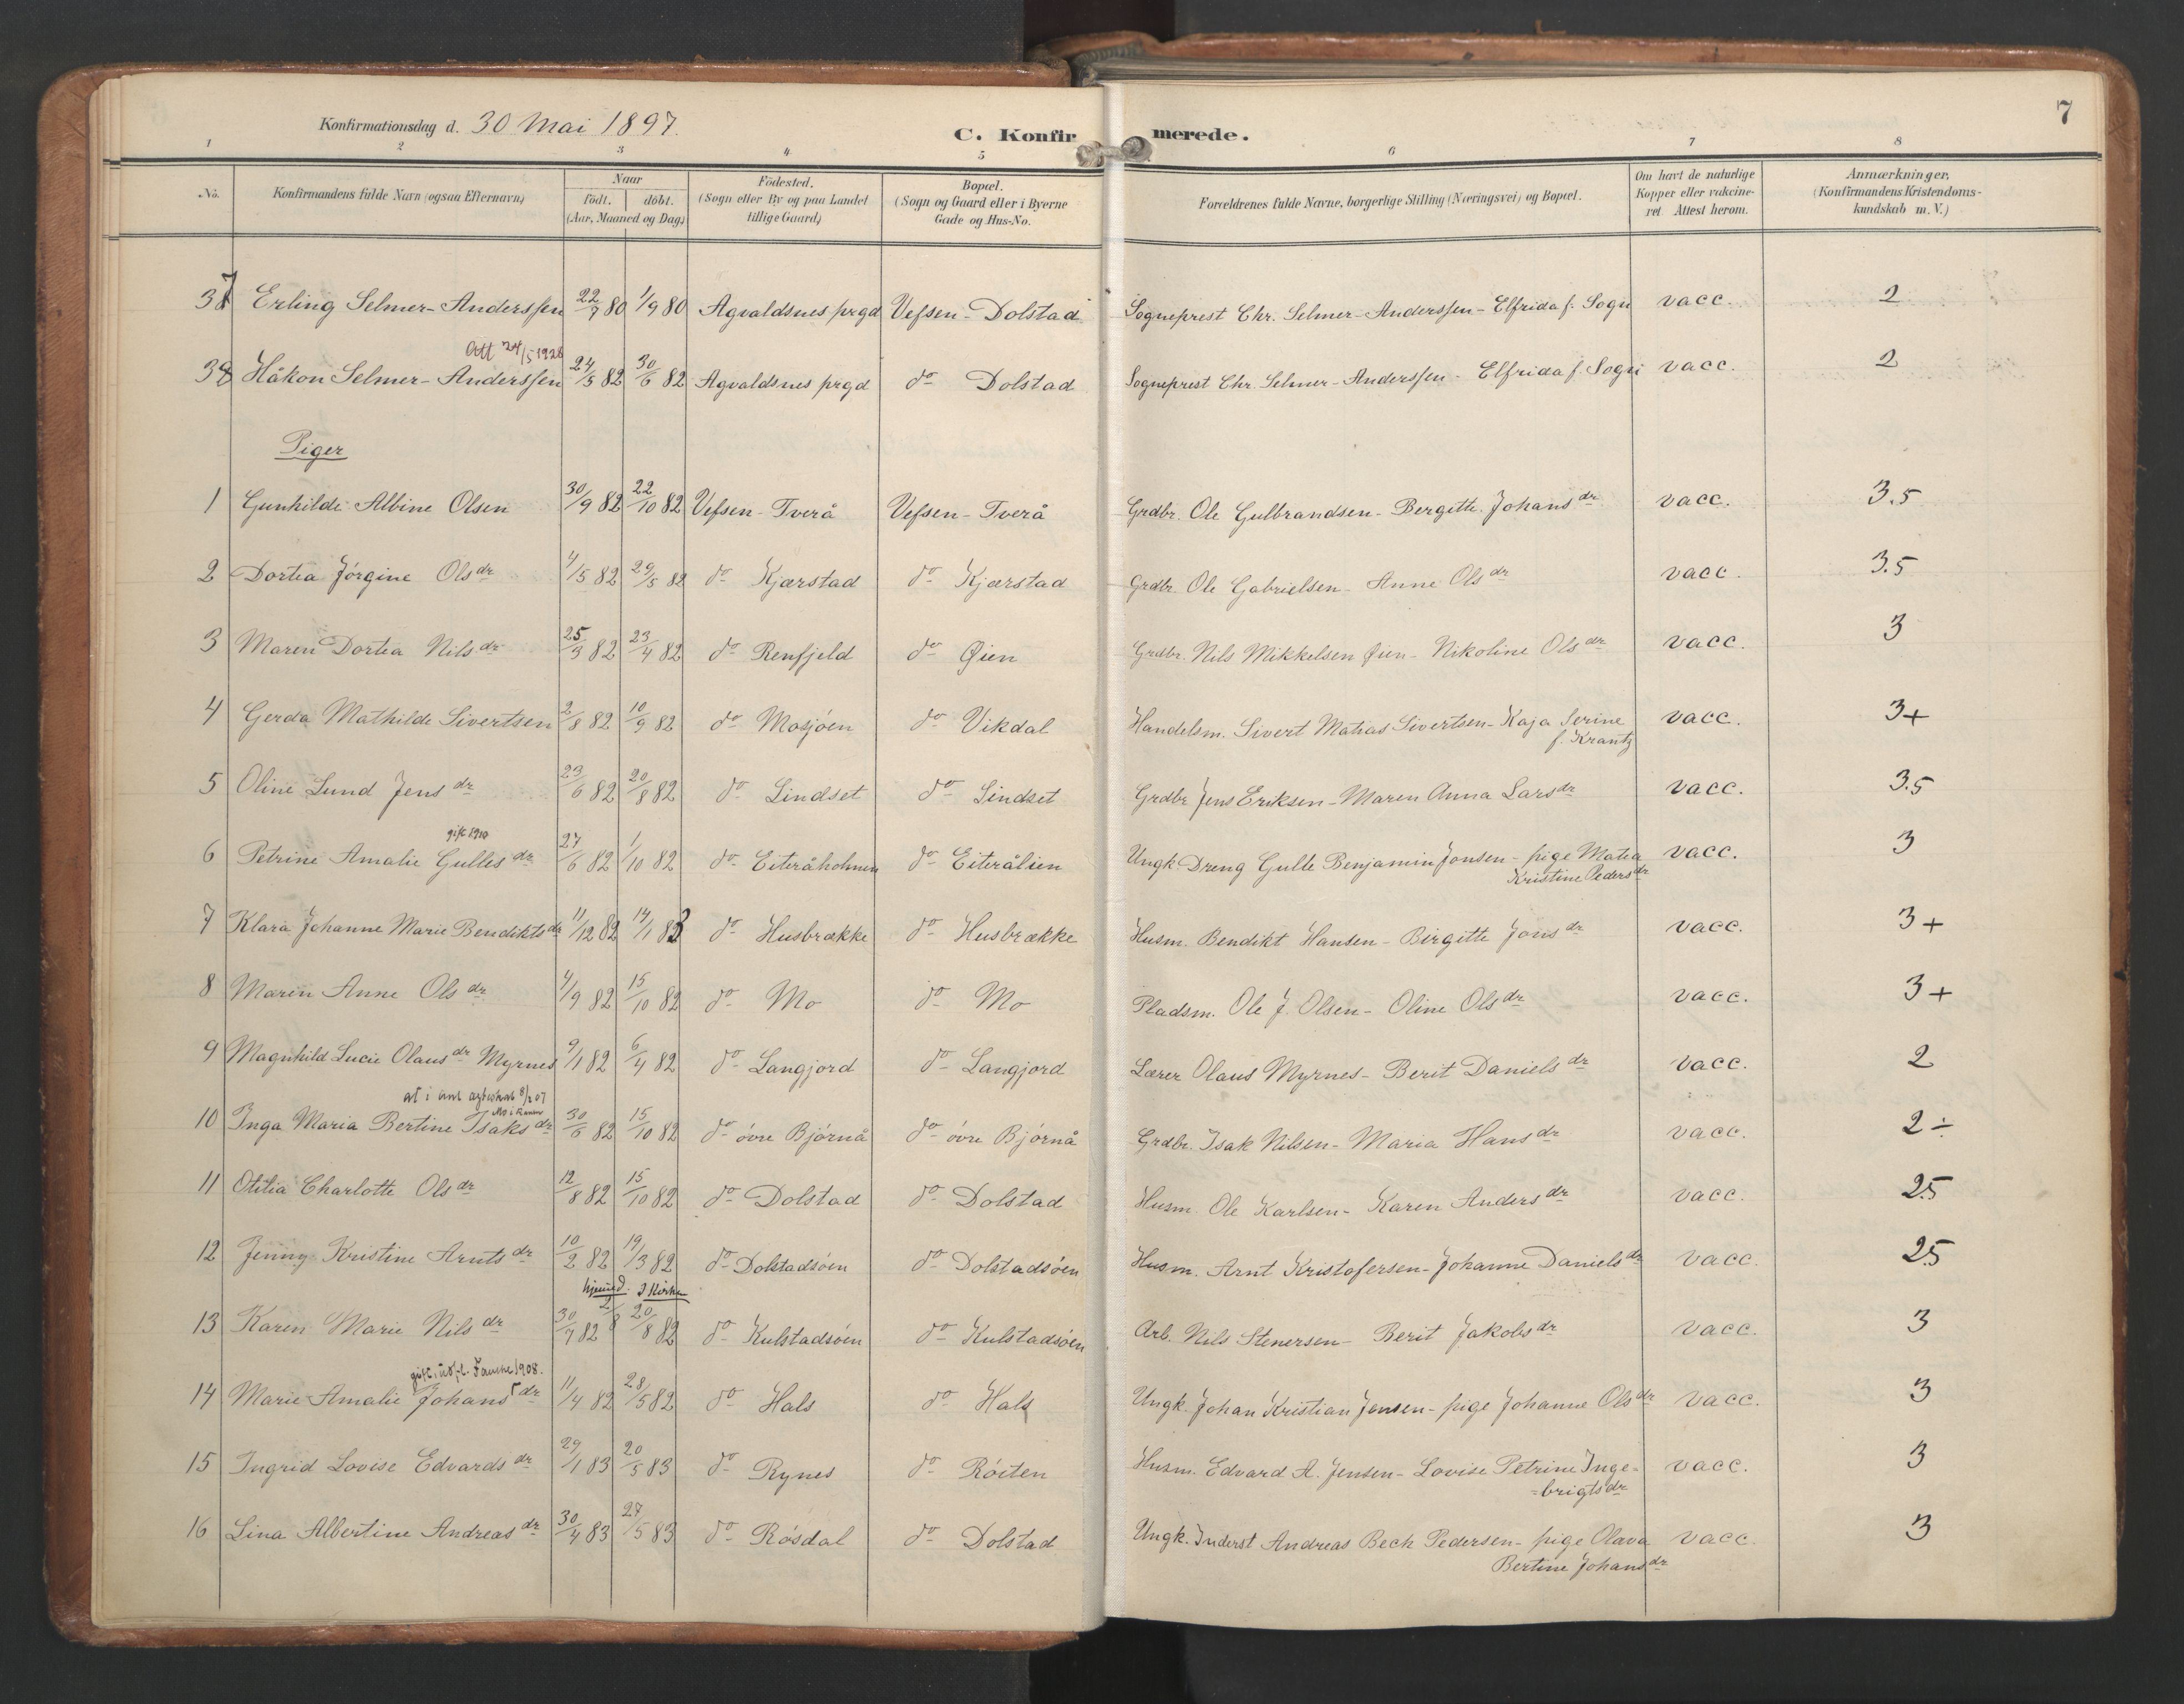 7
Konfirmationsdag d. 30 Mai 1897.
C. Konfirmerede.
1 2 3 4 5 6 7 8
No. Konfirmandens fulde Navn (ogsaa Efternavn) Naar født. døbt. (Aar, Maaned og Dag) Fødested. (Sogn eller By og paa Landet tillige Gaard) Bopæl. (Sogn og Gaard eller i Byerne Gade og Hus-No. Forældrenes fulde Navne, borgerlige Stilling (Næringsvei) og Bopæl. Om havt de naturlige Kopper eller vakcineret. Attest herom. Anmærkninger, (Konfirmandens Kristendomskundskab m. V.)
37 Erling Selmer-Anderssen 22/7 80 1/9 80 Agvaldsnes prgd Vefsen - Dolstad Sogneprest Chr. Selmer-Anderssen - Elfrida f. Sogn vacc. 2
Att 24/5 1928
38 Håkon Selmer-Anderssen 24/5 82 30/6 82 Agvaldsnes prgd do Dolstad Sogneprest Chr. Selmer-Anderssen - Elfrida f. Sogn vacc. 2
Piger
1 Gunhilde Albine Olsen 30/9 82 22/10 82 Vefsen - Tverå Vefsen - Tverå Grdbr. Ole Gulbrandsen - Bergitte Johansdr vacc. 3.5
2 Dortea Jörgine Olsdr 4/5 82 29/5 82 do Kjærstad do Kjærstad Grdbr. Ole Gabrielsen - Anne Olsdr vacc. 3.5
3 Maren Dortea Nilsdr 25/3 82 23/4 82 do Renfjeld do Øien Grdbr. Nils Mikkelsen Øien - Nikoline Olsdr vacc. 3
4 Gerda Mathilde Sivertsen 2/8 82 10/9 82 do Mosjöen do Vikdal Handelsm. Sivert Matias Sivertsen - Kaja Serine vacc. 3+
f. Krantz
5 Oline Lund Jensdr 23/6 82 20/8 82 do Lindset do Lindset Grdbr Jens Eriksen - Maren Anna Larsdr vacc. 3.5
gift 1910
6 Petrine Amalie Gullesdr 27/6 82 1/10 82 do Eiteråholmen do Eiterålien Ungk. Dreng Gulle Benjamin Jonsen - pige Matea vacc. 3
Kristine Pedersdr
7 Klara Johanne Marie Bendiktsdr 11/12 82 14/1 83 do Husbrække do Husbrække Husm. Bendikt Hansen - Birgitte Jonsdr vacc. 3+
8 Maren Anne Olsdr 4/9 82 15/10 82 do Mo do Mo Pladsm. Ole J. Olsen - Oline Olsdr vacc. 3+
9 Magnhild Lucie Olausdr Myrnes 9/1 82 6/4 82 do Langjord do Langjord Lærer Olaus Myrnes - Berit Danielsdr vacc. 2
8/2 07
Mo i Ranen
10 Inga Maria Bertine Isaksdr 30/6 82 15/10 82 do övre Björnå do övre Björnå Grdbr. Isak Nilsen - Maria Hansdr vacc. 2÷
11 Otilia Charlotte Olsdr 12/8 82 15/10 82 do Dolstad do Dolstad Husm. Ole Karlsen - Karen Andersdr vacc. 2.5
12 Jenny Kristine Arntsdr 10/2 82 19/3 82 do Dolstadsöen do Dolstadsöen Husm. Arnt Kristofersen - Johanne Danielsdr vacc. 2.5
hjemmed. I Kirken
13 Karen Marie Nilsdr 30/7 82 2/8 20/8 82 do Kulstadsöen do Kulstadsöen Arb. Nils Stenersen - Berit Jakobsdr vacc. 3
gift 1908.
14 Marie Amalie Johansdr 11/4 82 28/5 82 do Hals do Hals Ungk. Johan Kristian Jensen - pige Johanne Olsdr vacc. 3
15 Ingrid Lovise Edvardsdr 29/1 83 20/5 83 do Rynes do Röiten Husm. Edvard A. Jensen - Lovise Petrine Inge= vacc. 3
=brigtsdr
16 Lina Albertine Andreasdr 30/4 83 27/5 83 do Rösdal do Dolstad Ungk. Inderst Andreas Bech Pedersen - pige Olava vacc. 3
Bertine Johansdr